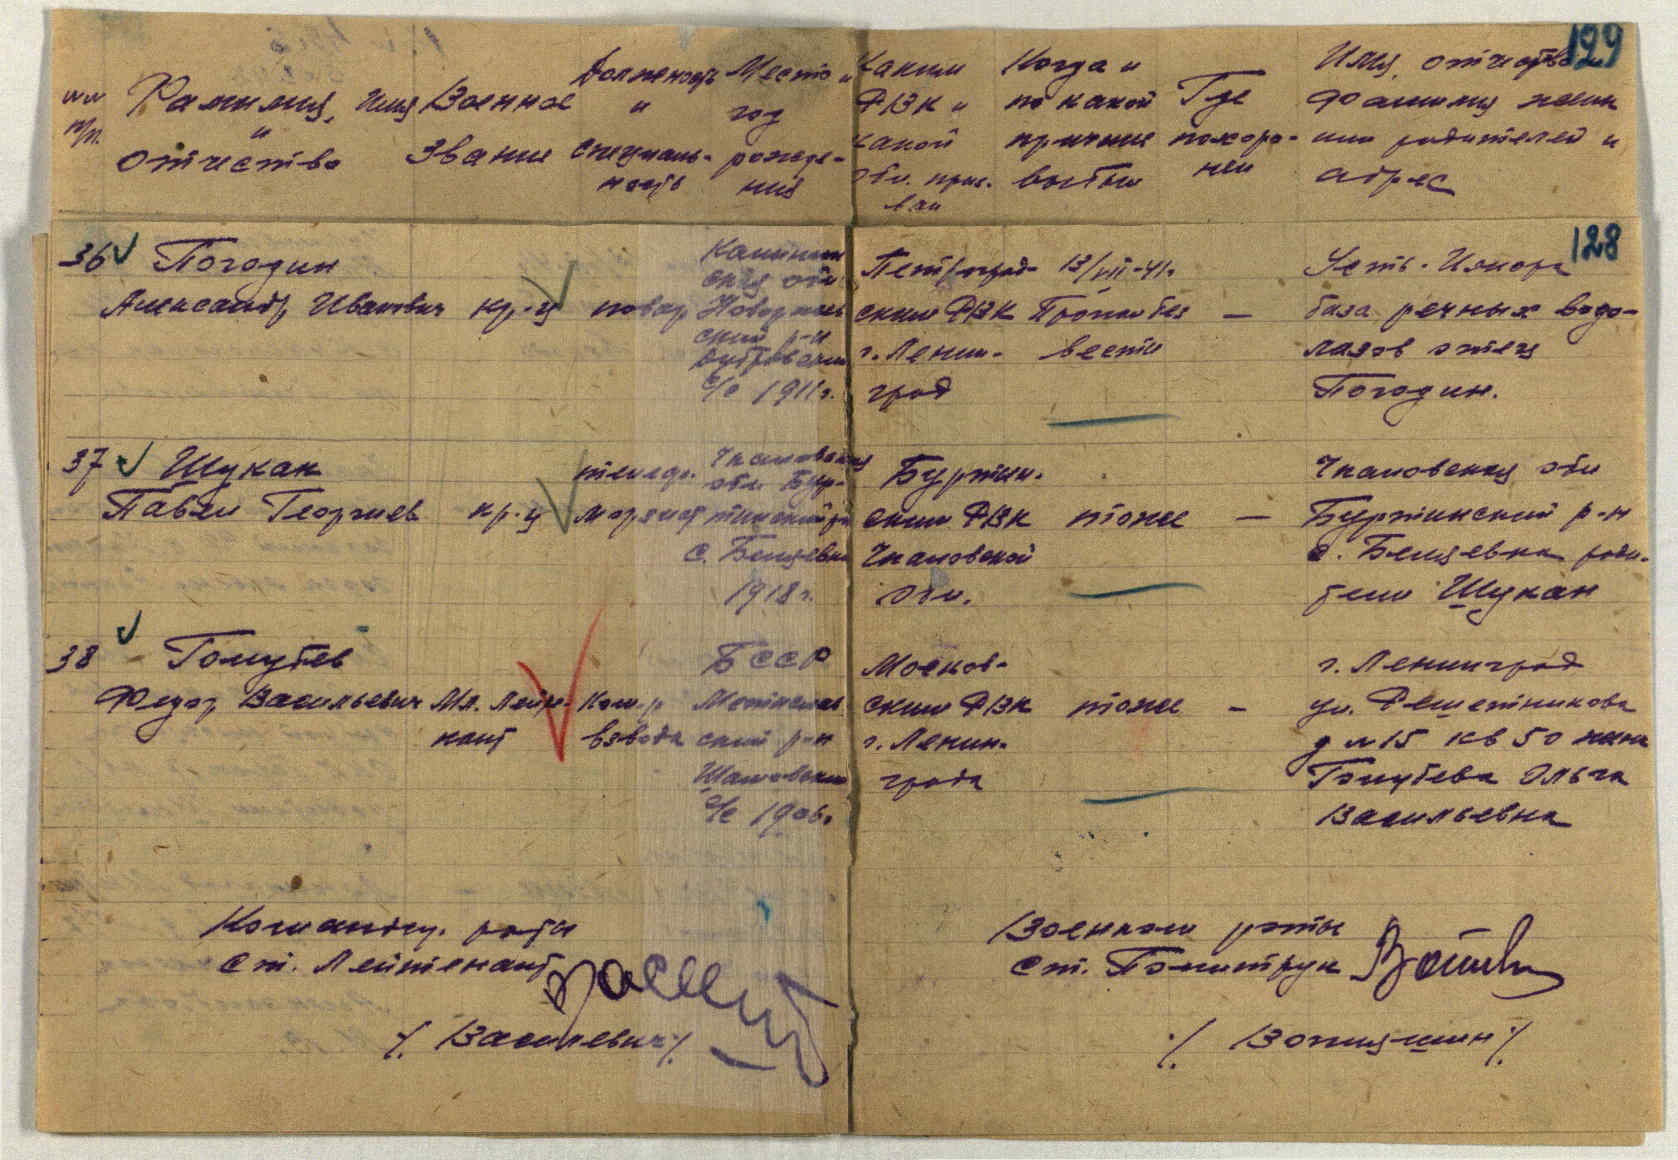 129
№№ п/п.
Фамилия, Имя
и
отчество
Военное
Звание
Должность
и
специаль-
ность
Место и
год
рожде-
ния
Каким
РВК и
какой
обл. приз-
ван
Когда и
по какой
причине
выбыл
Где
похоро-
нен
Имя, отчество
фамилия жены
или родителей и
адрес
128
36 Погодин
Александр Иванович
кр-ц
повар
Калинин
ская обл
Новоржев
ский р-н
с/с 1911г.
Петроград-
ским РВК
г. Ленин-
град
13/VII-41г.
Пропал без
вести
—
Усть-Ижора
база речных водо-
лазов отец
Погодин.
37 Щукан
Павел Георгиев
кр-ц
телегр.
морзист
Чкаловская
обл. Бур-
тинский р-н
с. Беляевка
1918г.
Буртин-
ским РВК
Чкаловской
обл.
тоже
—
Чкаловская обл
Буртинский р-н
с. Беляевка роди-
тели Щукан
38 Голубев
Федор Васильевич
Мл. Лейте-
нант
Ком-р
взвода
БССР
ский р-н
с/с 1906г.
Москов-
ским РВК
г. Ленин-
града
тоже
—
г. Ленинград
ул. Решетникова
д № 15 кв 50 жена
Голубева Ольга
Васильевна
Командир роты
Ст. Лейтенант
/. Василевич /.
Военком роты
Ст. Политрук